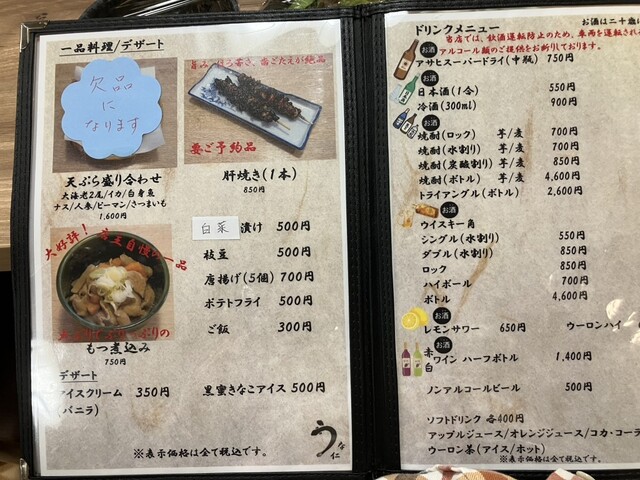 一品料理/デザート
欠品
に
なります
要ご予約品
天ぷら盛り合わせ
大海老2尾/イカ/白身魚
ナス/人参/ピーマン/さつまいも
1,600円
肝焼き(1本)
850円
大好評!店主自慢の一品
もつ煮込み
750円
白菜漬け 500円
枝豆 500円
唐揚げ(5個) 700円
ポテトフライ 500円
ご飯 300円
デザート
アイスクリーム 350円
(バニラ)
黒蜜きなこアイス 500円
うな仁
※表示価格は全て税込です。
ドリンクメニュー
お酒は二十歳に
当店では、飲酒運転防止のため、車両を運転される
アルコール類のご提供をお断りしております。
お酒
アサヒスーパードライ(中瓶) 750円
お酒
日本酒(1合) 550円
冷酒(300ml) 900円
お酒
焼酎(ロック) 芋/麦 700円
焼酎(水割り) 芋/麦 700円
焼酎(炭酸割り) 芋/麦 850円
焼酎(ボトル) 芋/麦 4,600円
トライアングル(ボトル) 2,600円
お酒
ウイスキー角
シングル(水割り) 550円
ダブル(水割り) 850円
ロック 850円
ハイボール 700円
ボトル 4,600円
お酒
レモンサワー 650円 ウーロンハイ
お酒
赤
白
ワイン ハーフボトル 1,400円
ノンアルコールビール 500円
ソフトドリンク 各400円
アップルジュース/オレンジジュース/コカ・コーラ
ウーロン茶(アイス/ホット)
※表示価格は全て税込です。